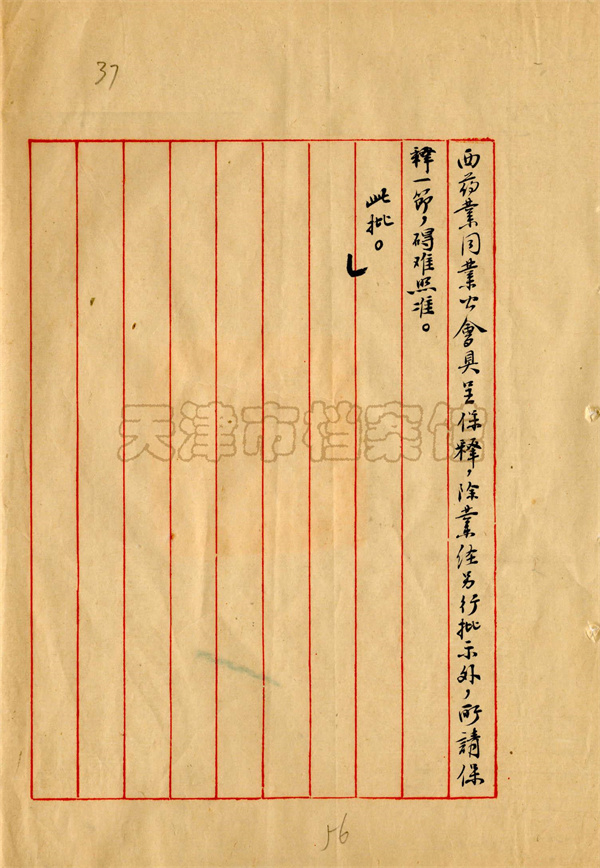 37
西药業同業公會具呈保釋，除業经另行批示外，所請保
釋一節，碍难照准。
此批。
天津市档案馆
56